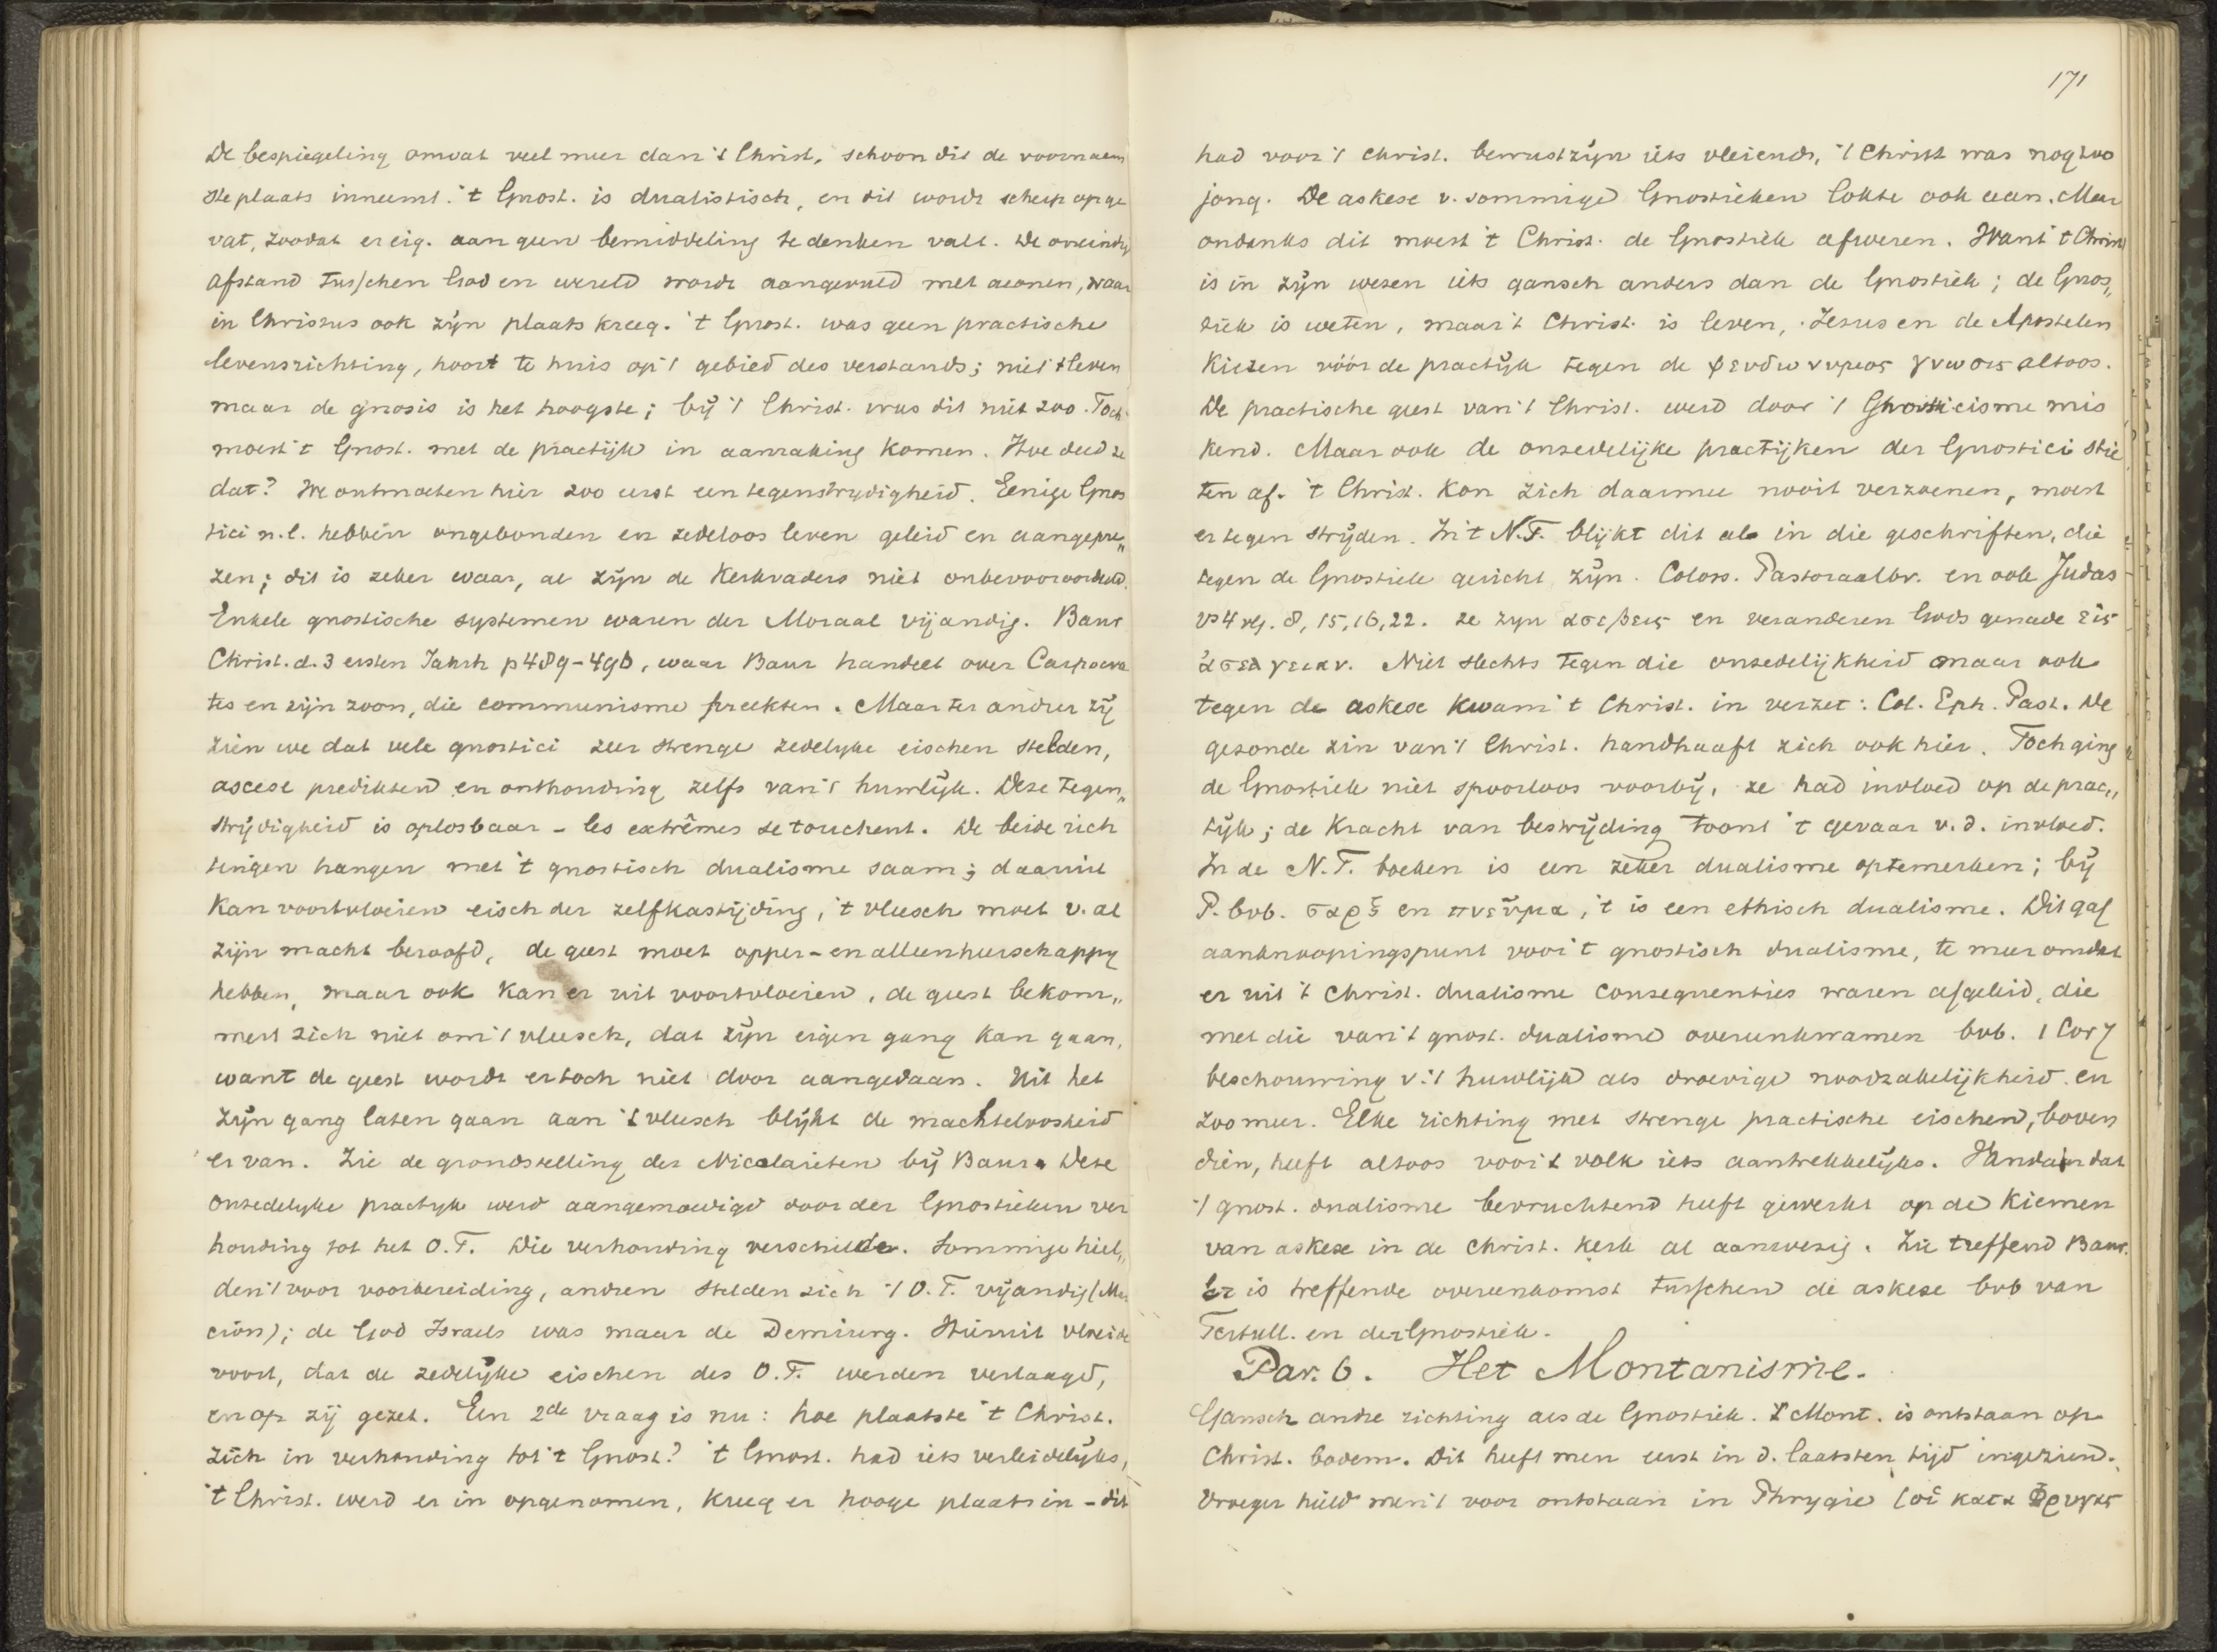 De bespiegeling omvat veel meer dan 't Christ. schoon dit de voornaam
ste plaats inneemt. 't Gnost. is dualistisch, en dit wordt scherp opge
vat, zoodat er eig. aan geen bemiddeling te denken valt. De oneindig
afstand tusschen God en wereld wordt aangevuld met aeonen, waar
in Christus ook zijn plaats kreeg. 't Gnost. was geen practische
levensrichting, hoort te huis op 't gebied des verstands; niet 't leven
maar de gnosis is het hoogste; bij 't Christ. was dit niet zoo. Toch
moest 't Gnost. met de practijk in aanraking komen. Hoe deed ze
dat? We ontmoeten hier zoo eerst een tegenstrijdigheid. Eenige Gnos
tici n.l. hebben ongebonden en zedeloos leven geleid en aangepre„
zen; dit is zeker waar, al zijn de Kerkvaders niet onbevooroordeeld.
Enkele gnostische systemen waren der Moraal vijandig. Baur
Christ. d. 3 ersten Jahrh p 489-490, waar Baur handelt over Carpocra
tes en zijn zoon, die communisme preekten. Maar ter andrer zij
zien we dat vele gnostici zeer strenge zedelijke eischen stelden,
ascese predikten en onthouding zelfs van 't huwlijk. Deze tegen„
strijdigheid is oplosbaar - les extrêmes se touchent. De beide rich
tingen hangen met 't gnostisch dualisme saam; daaruit
kan voortvloeien eisch der zelfkastijding, 't vleesch moet v. al
zijn macht beroofd, de geest moet opper-en alleenheerschappij
hebben, maar ook kan er uit voortvloeien, de geest bekom„
mert zich niet om 't vleesch, dat zijn eigen gang kan gaan,
want de geest wordt er toch niet door aangedaan. Uit het
zijn gang laten gaan aan 't vleesch blijkt de machteloosheid
er van. Zie de grondstelling der Nicolaieten bij Baur. Deze
onzedelijke practijk werd aangemoedigd door der Gnostieken ver
houding tot het O.T. Die verhouding verschilde. Sommige hiel„
den 't voor voorbereiding, andren stelden zich 't O.T. vijandig (Mar
cion); de God Israels was maar de Demiurg. Hieruit vloeide
voort, dat de zedelijke eischen des O.T. werden verlaagd,
en op zij gezet. Een 2de vraag is nu: hoe plaatste 't Christ.
zich in verhouding tot 't Gnost? 't Gnost. had iets verleidelijks,
't Christ. werd er in opgenomen, kreeg er hooge plaats in - dit
171
had voor 't Christ. bewustzijn iets vleiends, 't Christ was nog zoo
jong. De askese v. sommige Gnostieken lokte ook aan. Maar
ondanks dit moest 't Christ. de Gnostiek afweren. Want 't Christ
is in zijn wezen iets gansch anders dan de Gnostiek; de Gnos„
tiek is weten, maar 't Christ. is leven, Jezus en de Apostelen
kiezen vóór de practijk tegen de ψευδωνυμος γνωσις altoos.
De practische geest van 't Christ. werd door 't Gnosticisme mis
kend. Maar ook de onzedelijke practijken der Gnostici stie
ten af. 't Christ. kon zich daarmee nooit verzoenen, moest
er tegen strijden. In 't N.T. blijkt dit als in die geschriften, die
tegen de Gnostiek gericht zijn. Coloss. Pastoraalbr. en ook Judas
vs 4 vlg. 8, 15, 16, 22. ze zijn ασεβεις en veranderen Gods genade εἰς
ἀσελγειαν. Niet slechts tegen die onzedelijkheid maar ook
tegen de askese kwam 't Christ. in verzet: Col. Eph. Past. De
gezonde zin van 't Christ. handhaaft zich ook hier. Toch ging
de Gnostiek niet spoorloos voorbij, ze had invloed op de prac„
tijk; de kracht van bestrijding toont 't gevaar v. d. invloed.
In de N.T. boeken is een zeker dualisme optemerken; bij
P. bvb. σαρξ en πνεῦμα, 't is een ethisch dualisme. Dit gaf
aanknoopingspunt voor 't gnostisch dualisme, te meer omdat
er uit 't Christ. dualisme consequenties waren afgeleid, die
met die van 't gnost. dualisme overeenkwamen bvb. 1 Cor 7
beschouwing v. 't huwlijk als droevige noodzakelijkheid. en
zoo meer. Elke richting met strenge practische eischen, boven
dien, heeft altoos voor 't volk iets aantrekkelijks. Vandaar dat
't gnost. dualisme bevruchtend heeft gewerkt op de kiemen
van askese in de Christ. kerk al aanwezig. Zie treffend Baur.
Er is treffende overeenkomst tusschen de askese bvb van
Tertull. en der Gnostiek.
Par. 6. Het Montanisme.
Gansch andre richting als de Gnostiek. 't Mont. is ontstaan op
Christ. bodem. Dit heeft men eerst in d. laatsten tijd ingezien.
Vroeger hield men 't voor ontstaan in Phrygie (οἱ κατα Φρυγας